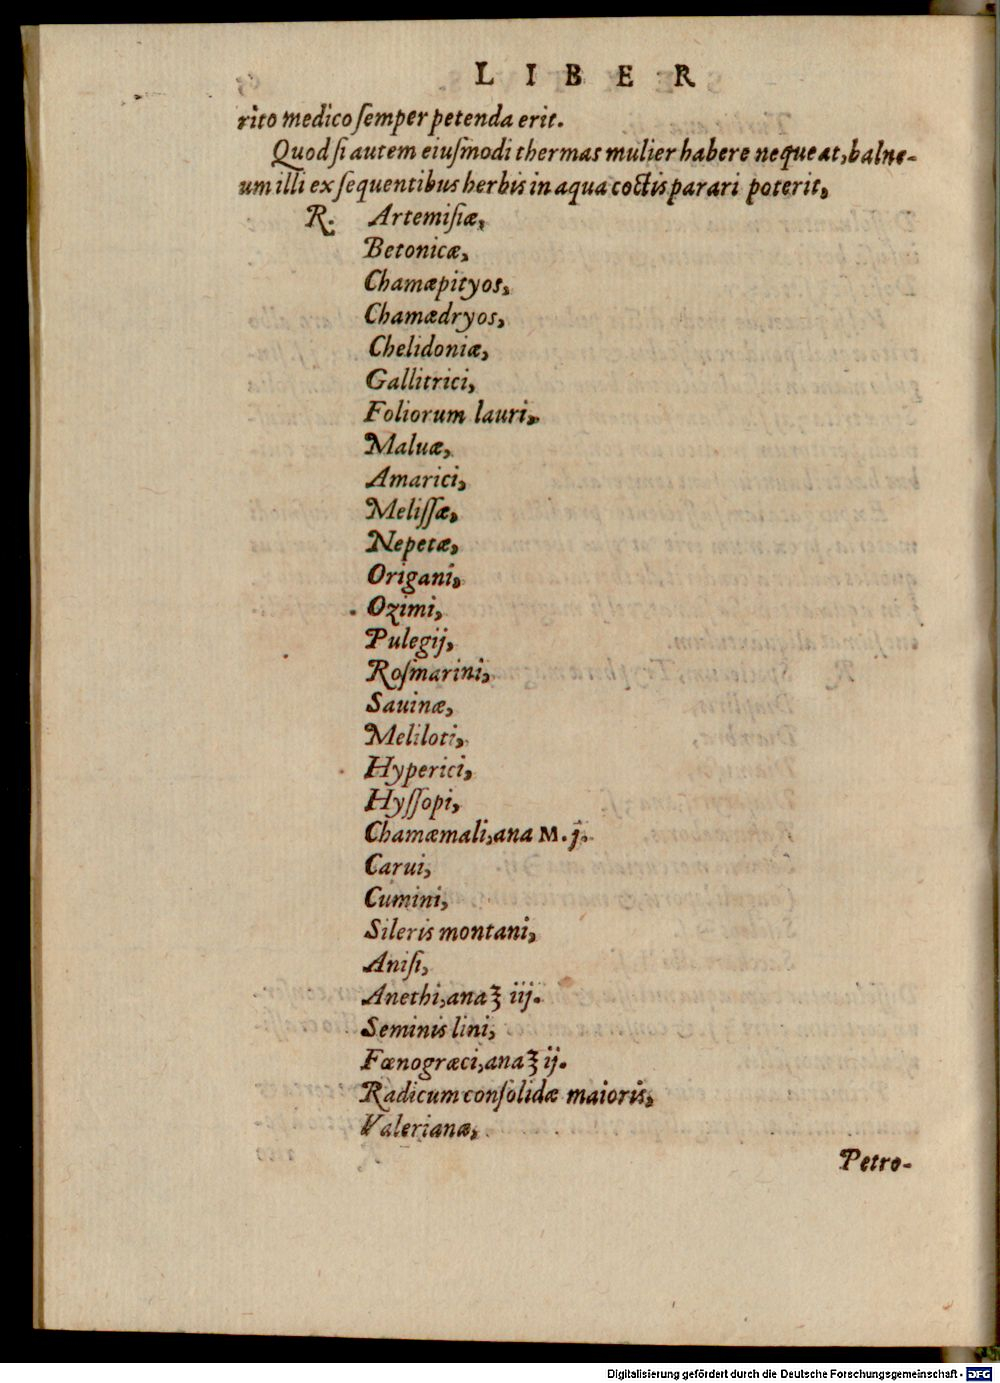 LIBER
rito medico ſemper petenda erit.
Quod ſi autem eiuſmodi thermas mulier habere nequeat, balne-
um illi ex ſequentibus herbis in aqua coctis parari poterit,
℞. Artemiſiæ,
Betonicæ,
Chamæpityos,
Chamædryos,
Chelidoniæ,
Gallitrici,
Foliorum lauri,
Maluæ,
Amarici,
Meliſſæ,
Nepetæ,
Origani,
Ozimi,
Pulegij,
Roſmarini,
Sauinæ,
Meliloti,
Hyperici,
Hyſſopi,
Chamæmali, ana M. j.
Carui,
Cumini,
Sileris montani,
Aniſi,
Anethi, ana ℥ iij.
Seminis lini,
Fœnogræci, ana ℥ ij.
Radicum conſolidæ maioris,
Valerianæ,
Petro-
Digitalisierung gefördert durch die Deutsche Forschungsgemeinschaft - DFG